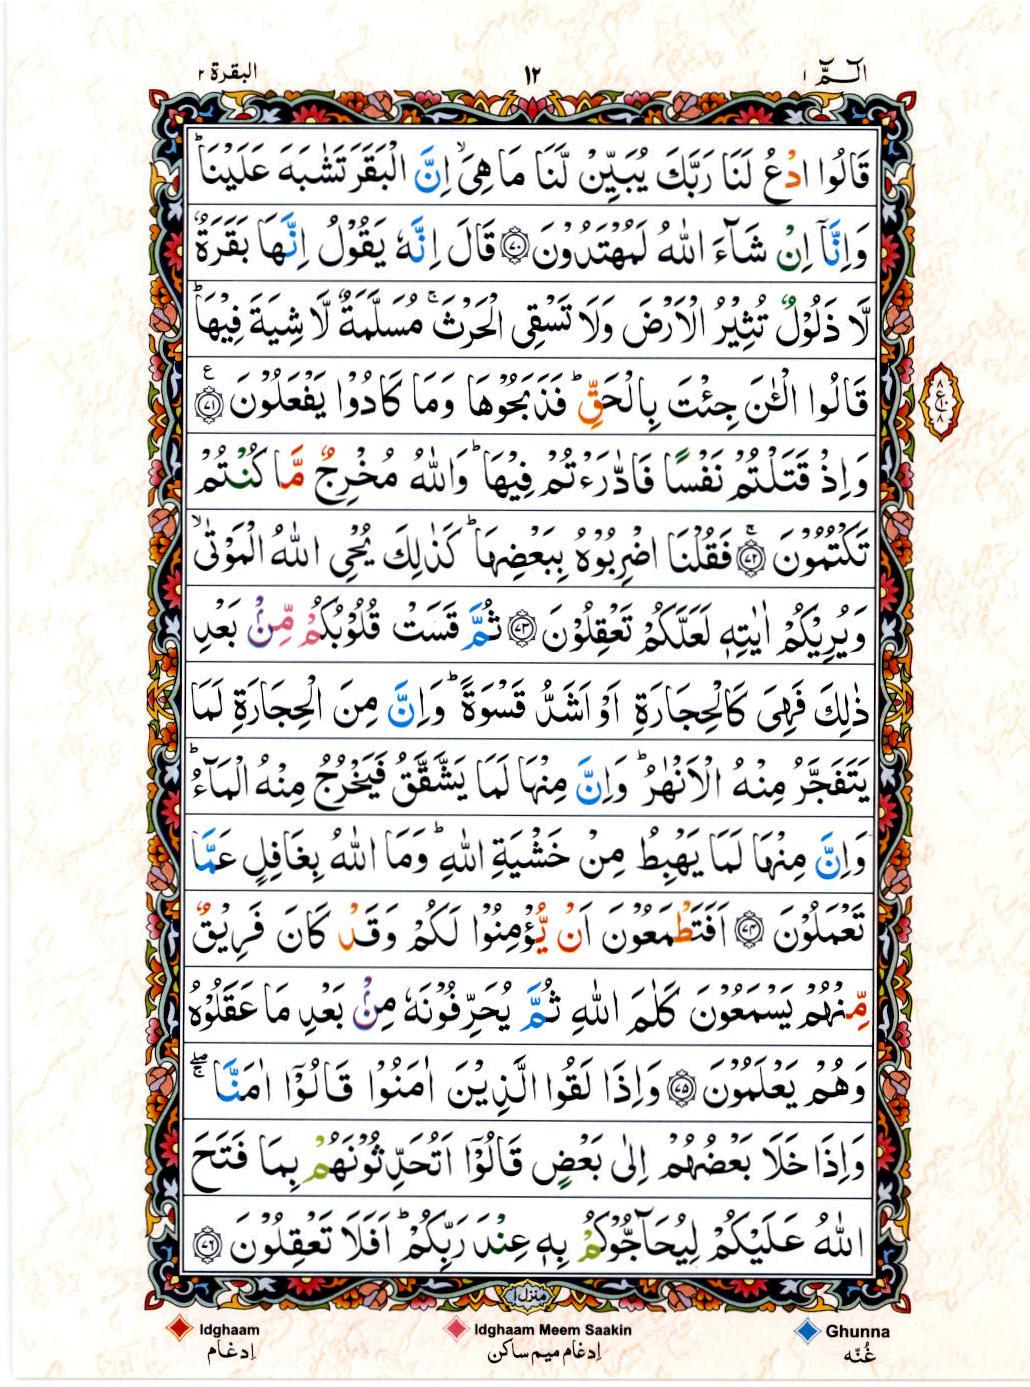 الٓـمّٓ ١
١٢
البقرة ٢
قَالُوا ادْعُ لَنَا رَبَّكَ يُبَيِّنْ لَّنَا مَا هِىَ ۙ اِنَّ الْبَقَرَ تَشٰبَهَ عَلَيْنَا ؕ
وَاِنَّاۤ اِنْ شَآءَ اللّٰهُ لَمُهْتَدُوْنَ ﴿۷۰﴾ قَالَ اِنَّهٗ يَقُوْلُ اِنَّهَا بَقَرَةٌ
لَّا ذَلُوْلٌ تُثِيْرُ الْاَرْضَ وَلَا تَسْقِى الْحَرْثَ ۚ مُسَلَّمَةٌ لَّا شِيَةَ فِيْهَا ؕ
قَالُوا الْـٰٔنَ جِئْتَ بِالْحَقِّ ؕ فَذَبَحُوْهَا وَمَا كَادُوْا يَفْعَلُوْنَ ﴿۷۱﴾ ع
٨
ع ١٠
٨
وَاِذْ قَتَلْتُمْ نَفْسًا فَادّٰرَءْتُمْ فِيْهَا ؕ وَاللّٰهُ مُخْرِجٌ مَّا كُنْتُمْ
تَكْتُمُوْنَ ۚ ﴿۷۲﴾ فَقُلْنَا اضْرِبُوْهُ بِبَعْضِهَا ؕ كَذٰلِكَ يُحْىِ اللّٰهُ الْمَوْتٰى ۙ
وَيُرِيْكُمْ اٰيٰتِهٖ لَعَلَّكُمْ تَعْقِلُوْنَ ﴿۷۳﴾ ثُمَّ قَسَتْ قُلُوْبُكُمْ مِّنْۢ بَعْدِ
ذٰلِكَ فَهِىَ كَالْحِجَارَةِ اَوْ اَشَدُّ قَسْوَةً ؕ وَاِنَّ مِنَ الْحِجَارَةِ لَمَا
يَتَفَجَّرُ مِنْهُ الْاَنْهٰرُ ؕ وَاِنَّ مِنْهَا لَمَا يَشَّقَّقُ فَيَخْرُجُ مِنْهُ الْمَآءُ ؕ
وَاِنَّ مِنْهَا لَمَا يَهْبِطُ مِنْ خَشْيَةِ اللّٰهِ ؕ وَمَا اللّٰهُ بِغَافِلٍ عَمَّا
تَعْمَلُوْنَ ﴿۷۴﴾ اَفَتَطْمَعُوْنَ اَنْ يُّؤْمِنُوْا لَكُمْ وَقَدْ كَانَ فَرِيْقٌ
مِّنْهُمْ يَسْمَعُوْنَ كَلٰمَ اللّٰهِ ثُمَّ يُحَرِّفُوْنَهٗ مِنْۢ بَعْدِ مَا عَقَلُوْهُ
وَهُمْ يَعْلَمُوْنَ ﴿۷۵﴾ وَاِذَا لَقُوا الَّذِيْنَ اٰمَنُوْا قَالُوْۤا اٰمَنَّا ۖۚ
وَاِذَا خَلَا بَعْضُهُمْ اِلٰى بَعْضٍ قَالُوْۤا اَتُحَدِّثُوْنَهُمْ بِمَا فَتَحَ
اللّٰهُ عَلَيْكُمْ لِيُحَآجُّوْكُمْ بِهٖ عِنْدَ رَبِّكُمْ ؕ اَفَلَا تَعْقِلُوْنَ ﴿۷۶﴾
منزل ١
Idghaam
اِدغام
Idghaam Meem Saakin
اِدغام میم ساکن
Ghunna
غُنّه